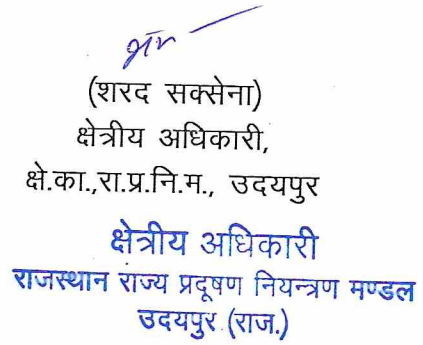 (शरद सक्सेना)
क्षेत्रीय अधिकारी,
क्षे.का.,रा.प्र.नि.म., उदयपुर
क्षेत्रीय अधिकारी
राजस्थान राज्य प्रदूषण नियन्त्रण मण्डल
उदयपुर (राज.)